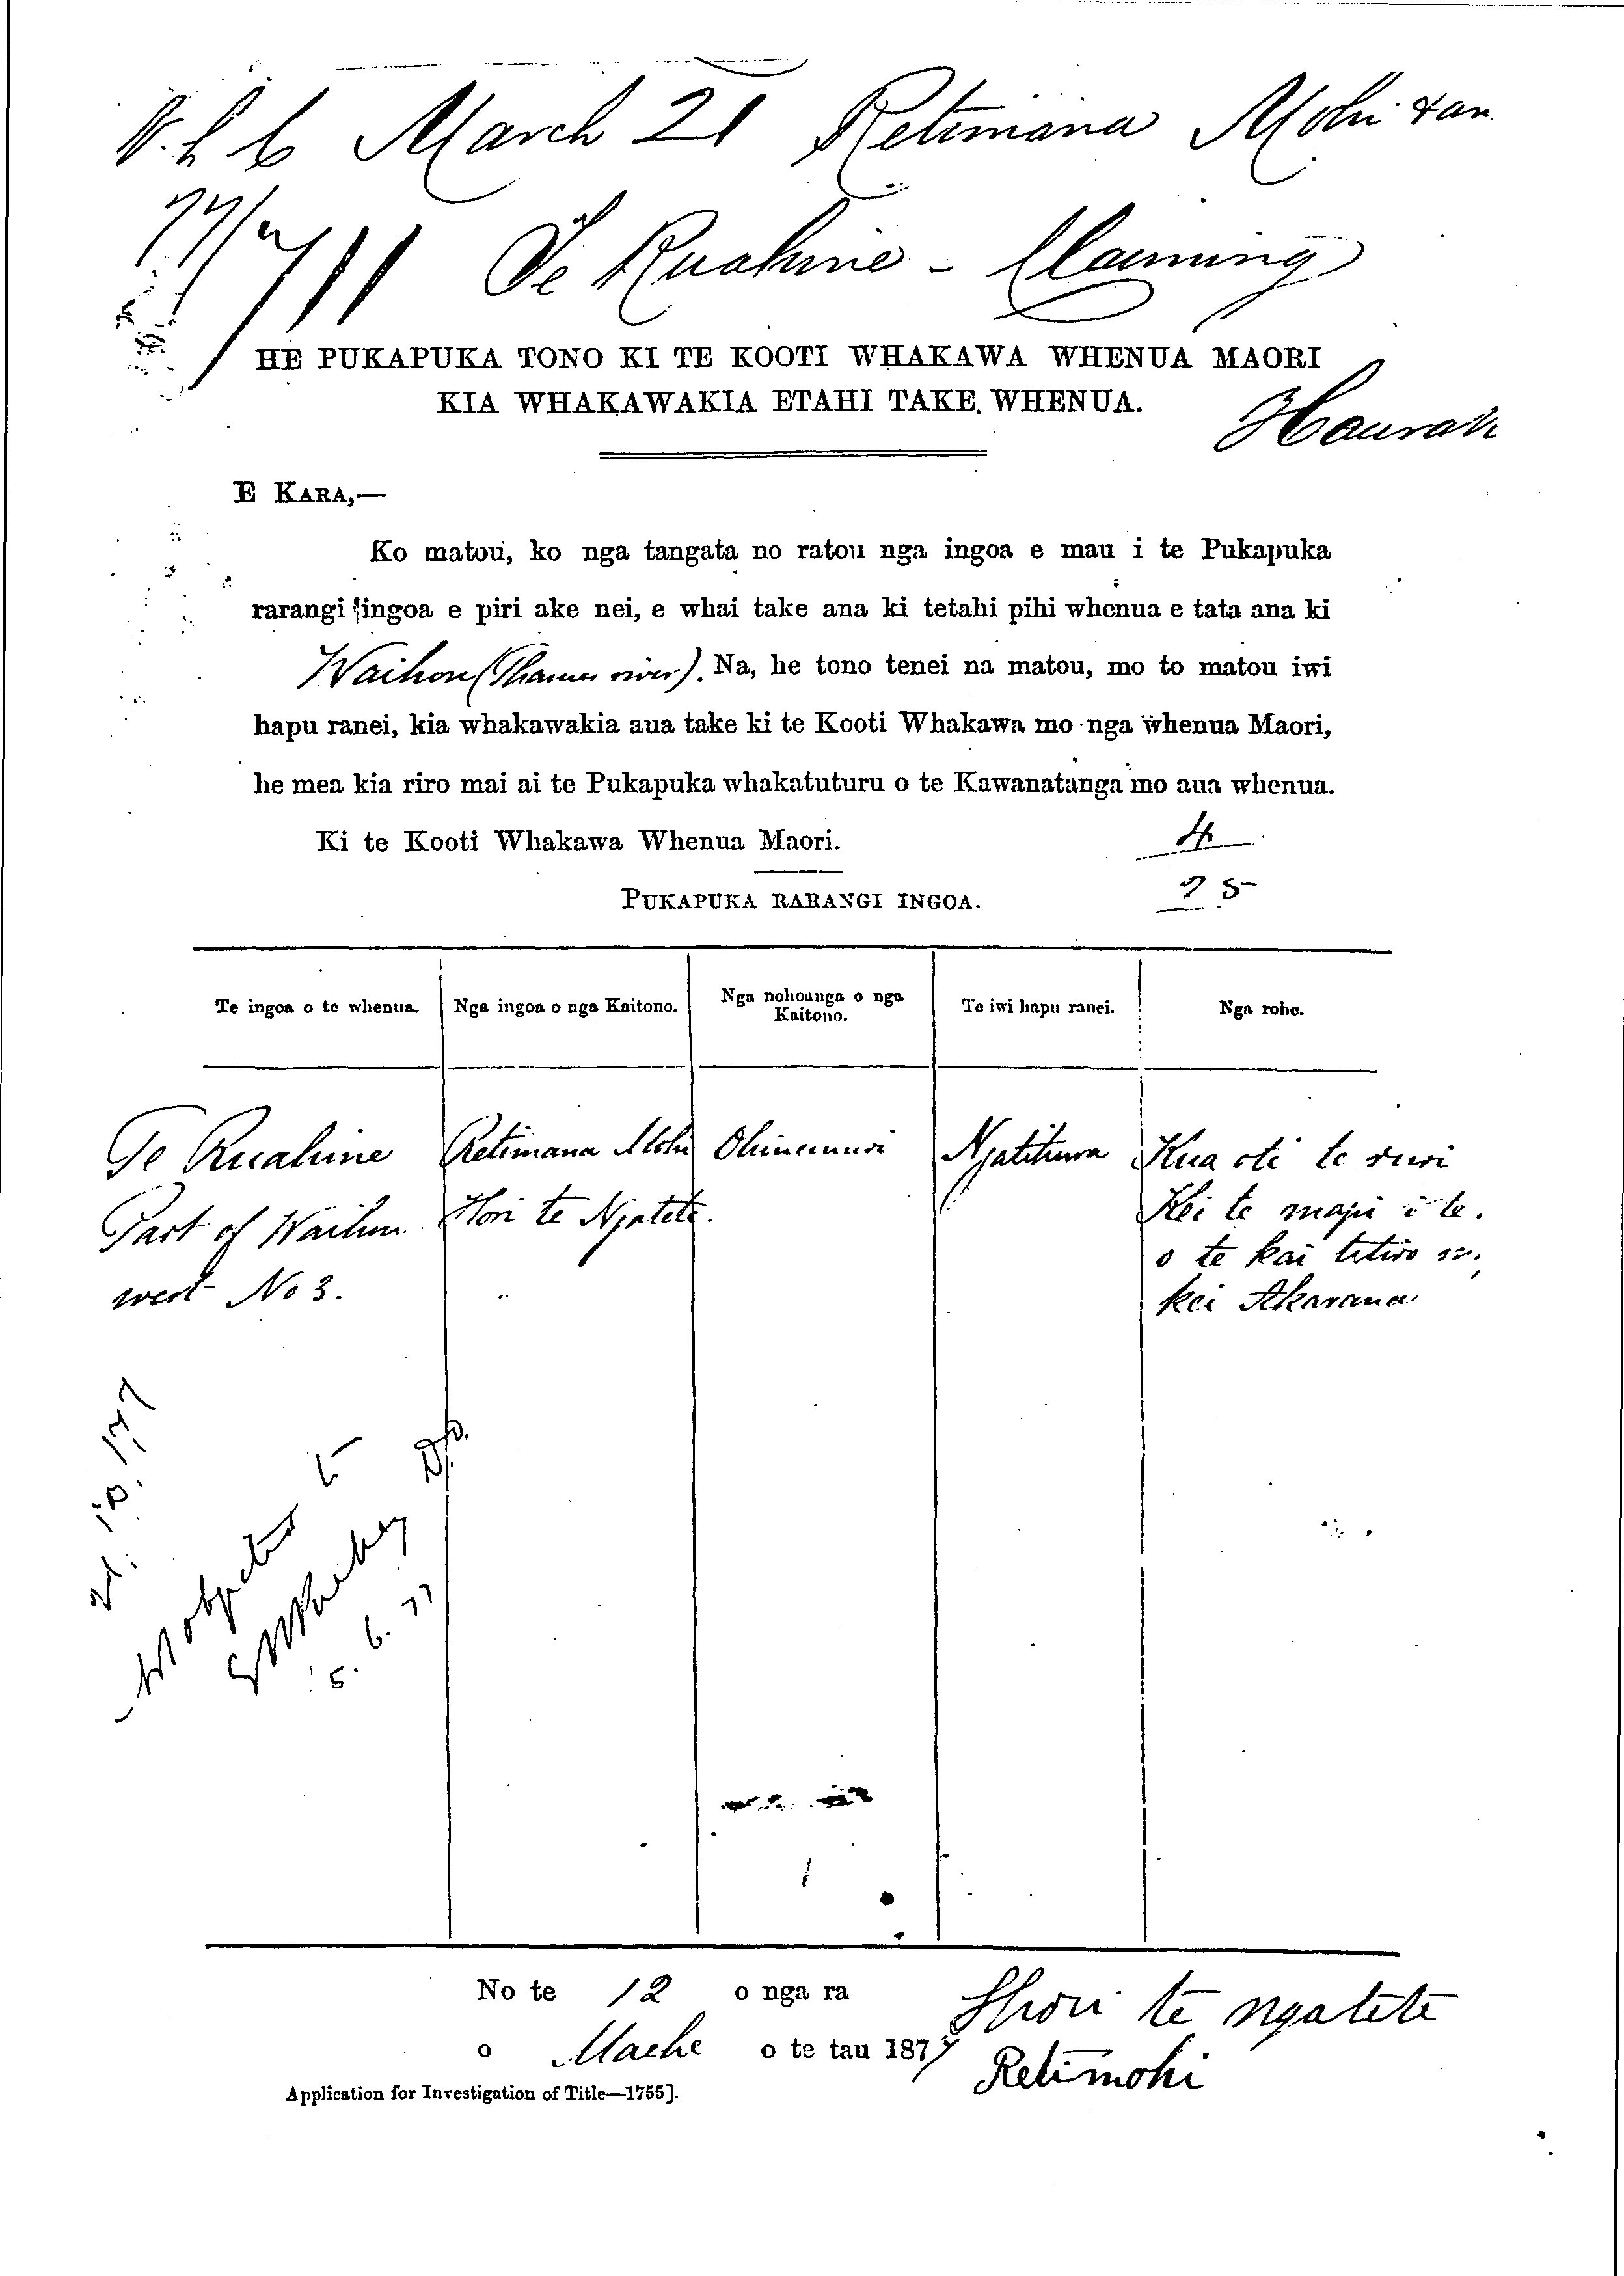 March 21 Retimana Mohi & an
77/711 Te Ruahine - Claiming
HE PUKAPUKA TONO KI TE KOOTI WHAKAWA WHENUA MAORI
KIA WHAKAWAKIA ETAHI TAKE WHENUA.
Haurak
E KARA,—
Ko matou, ko nga tangata no ratou nga ingoa e mau i te Pukapuka
rarangi ingoa e piri ake nei, e whai take ana ki tetahi pihi whenua e tata ana ki
Waihou (Thames river). Na, he tono tenei na matou, mo to matou iwi
hapu ranei, kia whakawakia aua take ki te Kooti Whakawa mo nga whenua Maori,
he mea kia riro mai ai te Pukapuka whakatuturu o te Kawanatanga mo aua whenua.
Ki te Kooti Whakawa Whenua Maori.
4
25
PUKAPUKA RARANGI INGOA.
Te ingoa o te whenua. Nga ingoa o nga Kaitono. Nga nohoanga o nga Kaitono. Te iwi hapu ranei. Nga rohe.
Te Ruahine Retimana Mohi Ohinemuri Ngatihura Kua oti te ruri
Part of Waihou Hori te Ngatete. Kei te mapi i te.
west No 3. o te kai titiro
kei Akarana
5. 6. 77
No te 12 o nga ra Hori te ngatete
o Mache o te tau 1877 Retimohi
Application for Investigation of Title—1755].